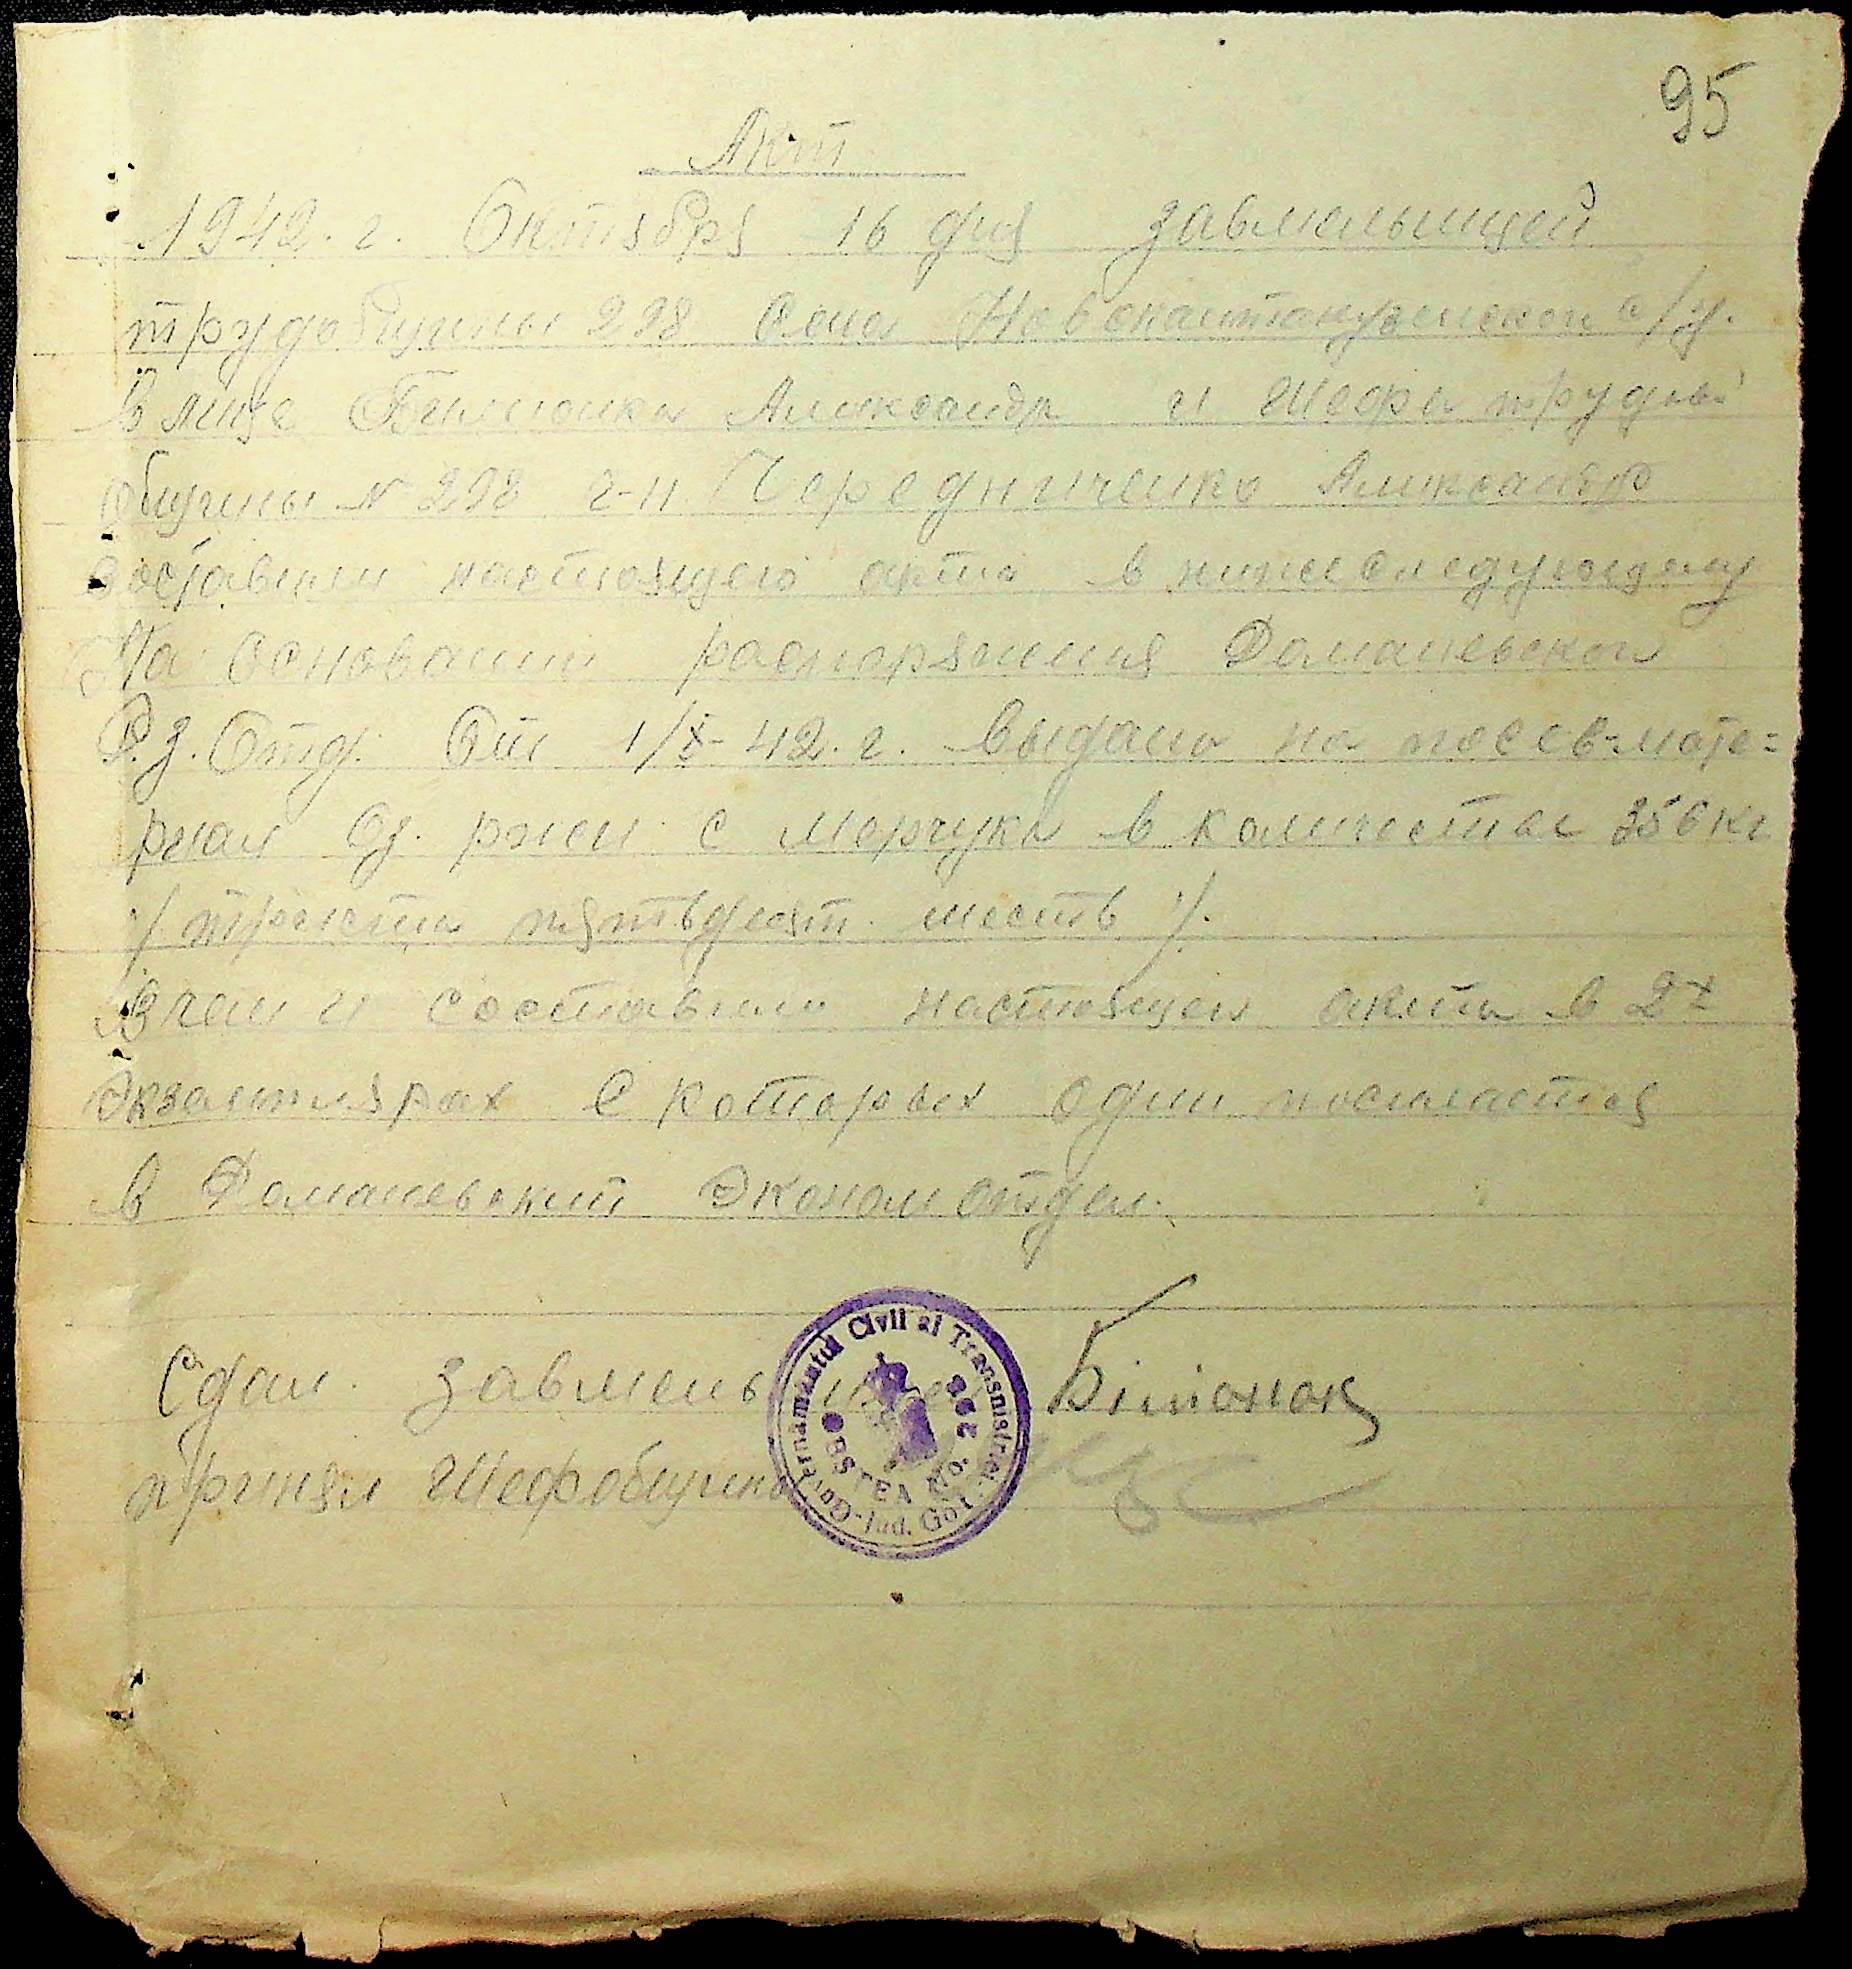 95
Акт
1942. г. Октября 16 дня завмельницей
трудобщины 298 села с/у.
в лице Александр и Шефа трудовой
общины № 298 г-н Чередниченко Александр
составили настоящего акта в нижеследующему
На основании распоряжения Доманевской
Р.З. Отд. От 1/X-42. г. выдано на посев-мате=
риал Оз. ржи с в количестве 356 кг
/. триста пятьдесят. шесть ./.
В чем и составили настоящей акта в 2х
Экземплярах с которых один посилается
в Доманевский Эконом отдел.
Сдал. завмельницей
принял Шефобщины
Guvernamantul Civil al Transnistriei
OBSTEA No. 298
Jud. Golta